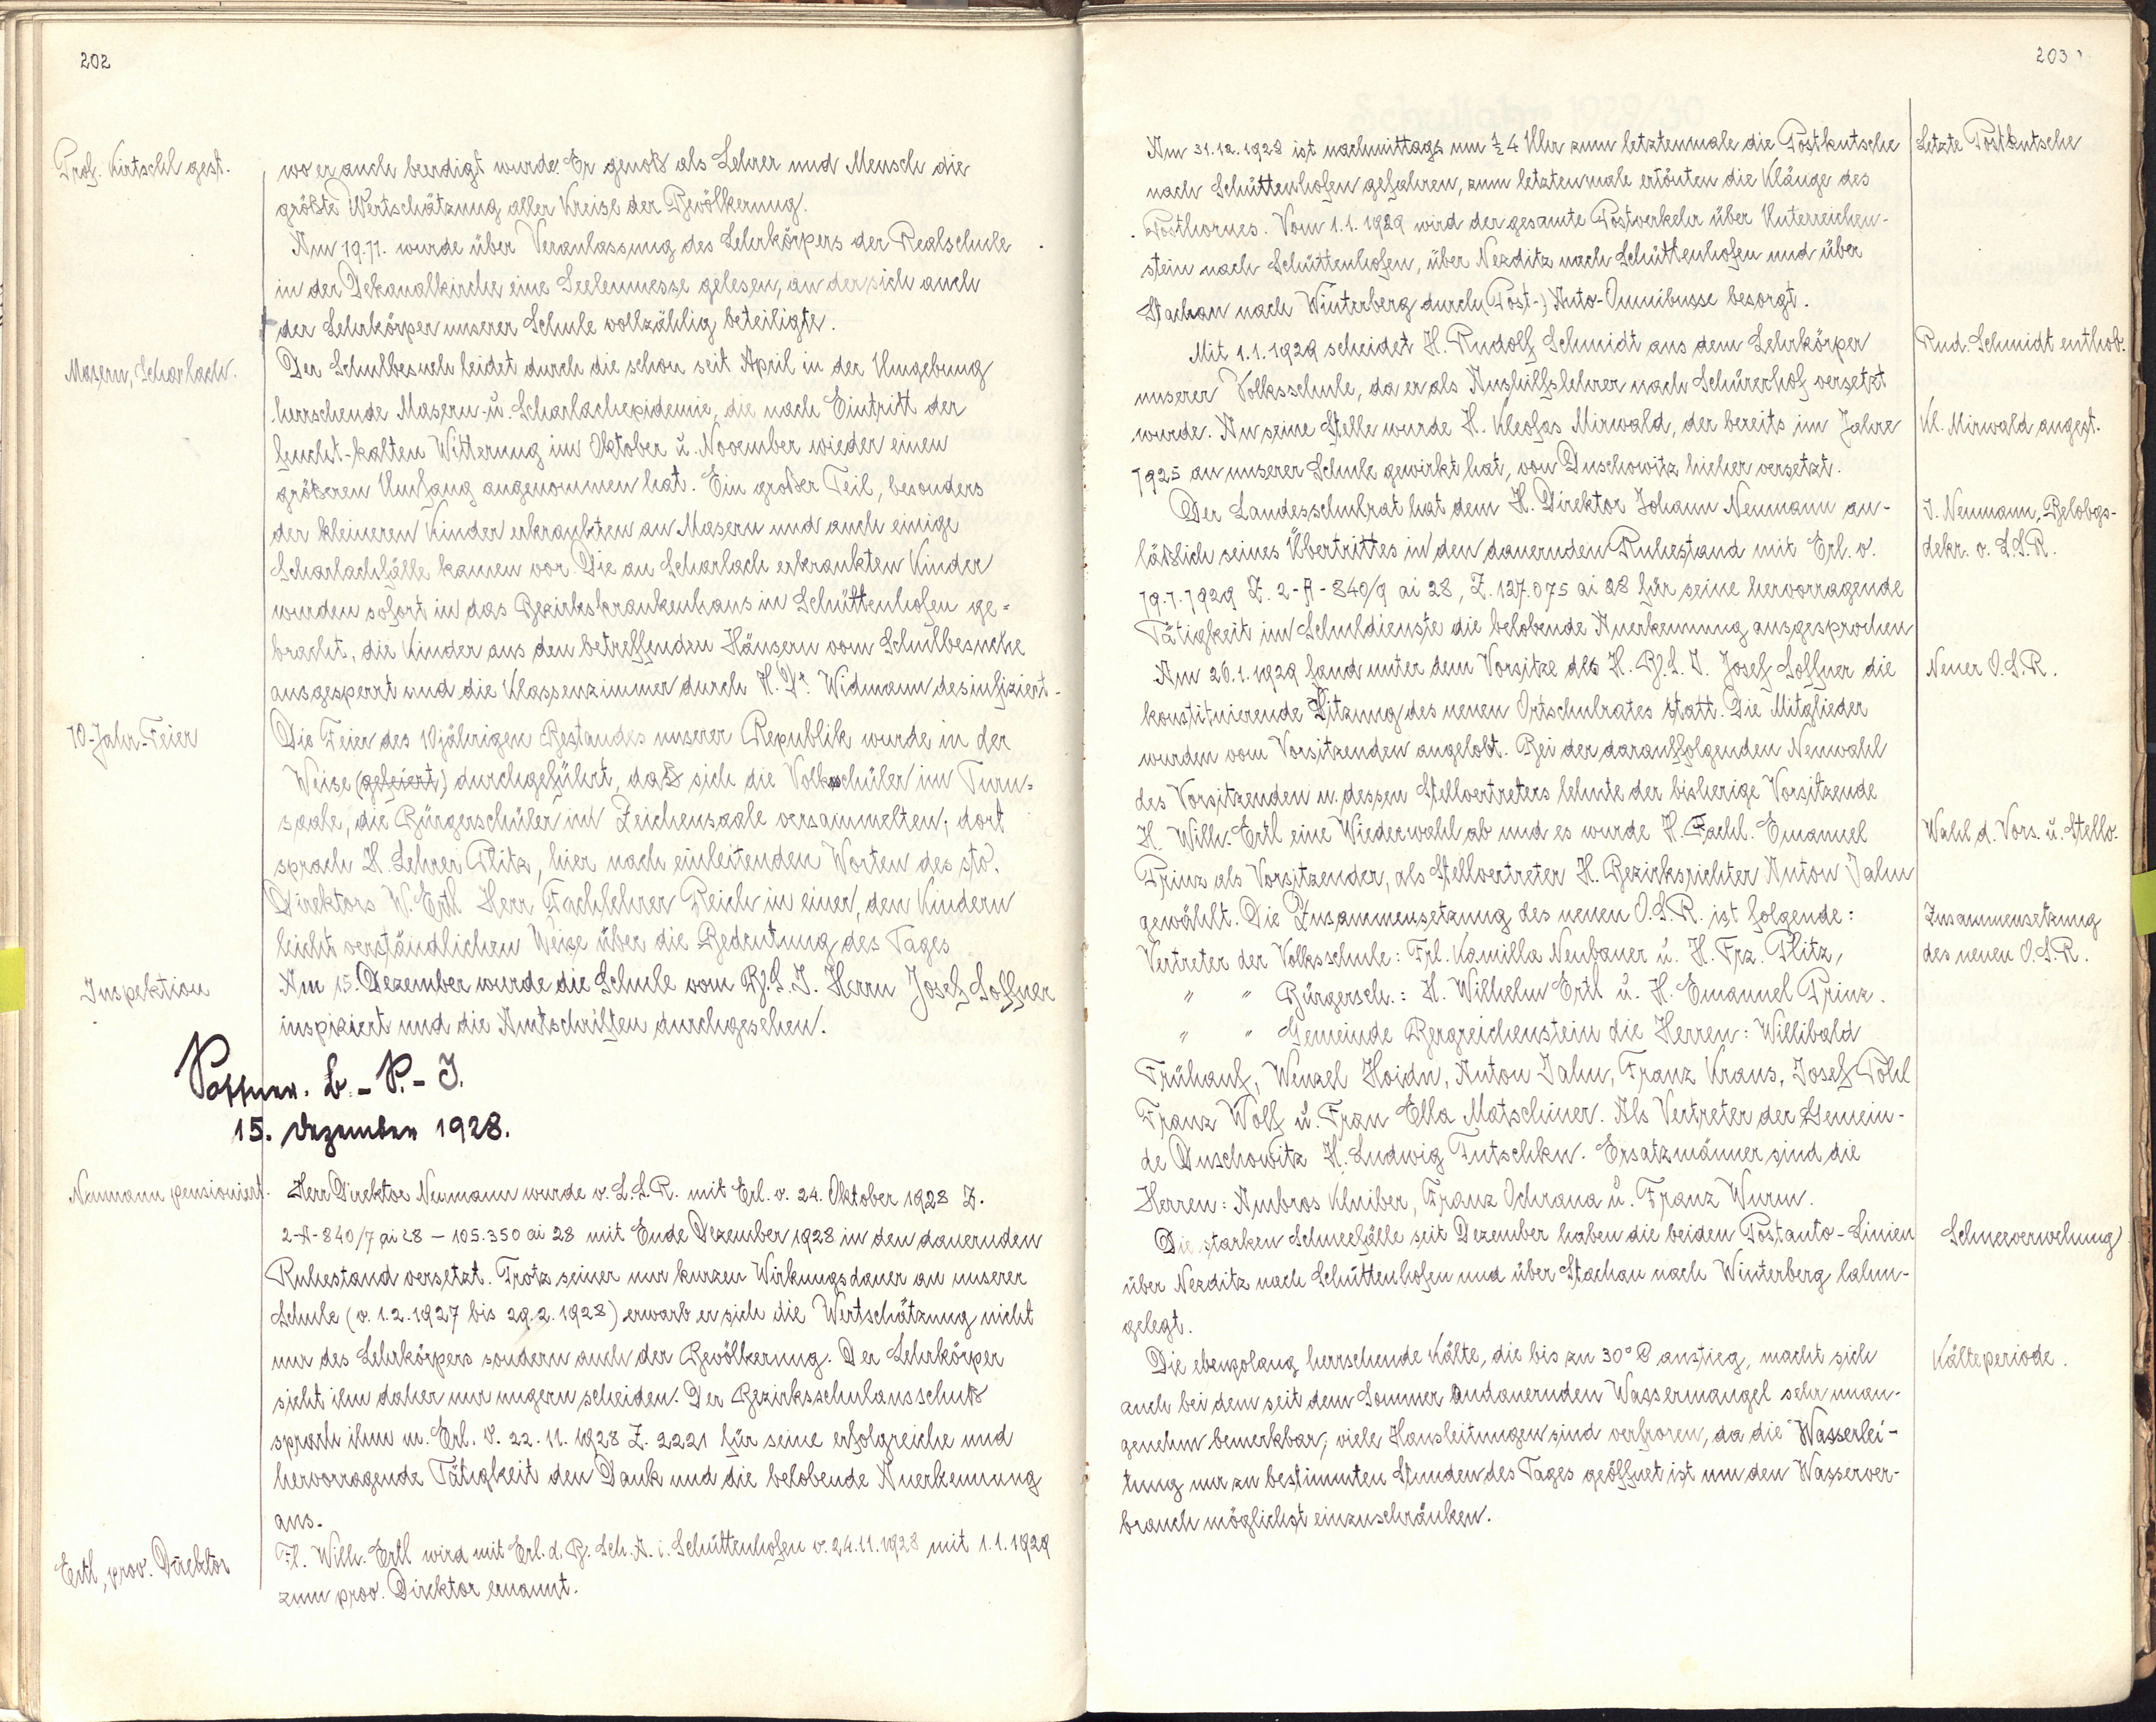 202
Prof. Kirtschl gest.
wo er auch beerdigt wurde. Er genoß als Lehrer und Mensch die
größte Wertschätzung aller Kreise der Bevölkerung.
Am 19.11. wurde über Veranlassung des Lehrkörpers der Realschule
in der Dekanalkirche eine Seelenmesse gelesen, an der sich auch
der Lehrkörper unserer Schule vollzählig beteiligte.
Masern, Scharlach.
Der Schulbesuch leidet durch die schon seit April in der Umgebung
herrschende Masern- u. Scharlachepidemie, die nach Eintritt der
feucht-kalten Witterung im Oktober u. November wieder einen
größeren Umfang angenommen hat. Ein großer Teil, besonders
der kleineren Kinder erkrankten an Masern und auch einige
Scharlachfälle kamen vor. Die an Scharlach erkrankten Kinder
wurden sofort in das Bezirkskrankenhaus in Schüttenhofen ge-
bracht, die Kinder aus den betreffenden Häusern vom Schulbesuche
ausgesperrt und die Klassenzimmer durch H. Dr. Widmann desinfiziert.
10-Jahr-Feier
Die Feier des 10jährigen Bestandes unserer Republik wurde in der
Weise (gefeiert) durchgeführt, daß sich die Volksschüler im Turn-
saale, die Bürgerschüler im Zeichensaale versammelten; dort
sprach H. Lehrer Plitz, hier nach einleitenden Worten des stv.
Direktors W. Ertl Herr Fachlehrer Reich in einer, den Kindern
leicht verständlichen Weise über die Bedeutung des Tages.
Inspektion
Am 15. Dezember wurde die Schule vom B.S.I. Herrn Josef Soffner
inspiziert und die Amtschriften durchgesehen.
Soffner. B.-S.-I.
15. Dezember 1928.
Neumann pensioniert.
Herr Direktor Neumann wurde v. L.S.R. mit Erl. v. 24. Oktober 1928 Z.
2-A-840/7 ai 28 – 105.350 ai 28 mit Ende Dezember 1928 in den dauernden
Ruhestand versetzt. Trotz seiner nur kurzen Wirkungsdauer an unserer
Schule (v. 1.2.1927 bis 29.2.1928) erwarb er sich die Wertschätzung nicht
nur des Lehrkörpers sondern auch der Bevölkerung. Der Lehrkörper
sieht ihn daher nur ungern scheiden. Der Bezirksschulausschuß
sprach ihm m. Erl. v. 22.11.1928 Z. 2221 für seine erfolgreiche und
hervorragende Tätigkeit den Dank und die belobende Anerkennung
aus.
Ertl, prov. Direktor
Fl. Wilh. Ertl wird mit Erl. d. B. Sch. A. i. Schüttenhofen v. 24.11.1928 mit 1.1.1929
zum prov. Direktor ernannt.
203
Am 31.12.1928 ist nachmittags um ½4 Uhr zum letztenmale die Postkutsche
Letzte Postkutsche
nach Schüttenhofen gefahren, zum letztenmale ertönten die Klänge des
Posthornes. Vom 1.1.1929 wird der gesamte Postverkehr über Unterreichen-
stein nach Schüttenhofen, über Nezditz nach Schüttenhofen und über
Stachau nach Winterberg durch (Post-) Auto-Omnibusse besorgt.
Mit 1.1.1929 scheidet H. Rudolf Schmidt aus dem Lehrkörper
Rud. Schmidt enthob.
unserer Volksschule, da er als Aushilfslehrer nach Schürerhof versetzt
wurde. An seine Stelle wurde H. Kleofas Mirwald, der bereits im Jahre
Kl. Mirwald angest.
1925 an unserer Schule gewirkt hat, von Duschowitz hieher versetzt.
Der Landesschulrat hat dem H. Direktor Johann Neumann an-
J. Neumann, Belobgs-
läßlich seines Übertrittes in den dauernden Ruhestand mit Erl. v.
dekr. v. L.S.R.
19.1.1929 Z. 2-A-840/9 ai 28, Z. 127.075 ai 28 für seine hervorragende
Tätigkeit im Schuldienste die belobende Anerkennung ausgesprochen
Am 20.1.1929 fand unter dem Vorsitze des H. B.S.I. Josef Soffner die
Neuer O.S.R.
konstituierende Sitzung des neuen Ortschulrates statt. Die Mitglieder
wurden vom Vorsitzenden angelobt. Bei der darauffolgenden Neuwahl
des Vorsitzenden u. dessen Stellvertreters lehnte der bisherige Vorsitzende
H. Wilh. Ertl eine Wiederwahl ab und es wurde H. Fachl. Emanuel
Wahl d. Vors. u. Stellv.
Prinz als Vorsitzender, als Stellvertreter H. Bezirksrichter Anton Jahn
gewählt. Die Zusammensetzung des neuen O.S.R. ist folgende:
Zusammensetzung
Vertreter der Volksschule: Frl. Kamilla Neubauer u. H. Frz. Plitz,
des neuen O.S.R.
" " Bürgersch.: H. Wilhelm Ertl u. H. Emanuel Prinz.
" " Gemeinde Bergreichenstein die Herren: Willibald
Frühauf, Wenzel Hoidn, Anton Jahn, Franz Kraus, Josef Pohl
Franz Wolf u. Frau Ella Matschiner. Als Vertreter der Gemein-
de Duschowitz H. Ludwig Tutschku. Ersatzmänner sind die
Herren: Ambros Kluiber, Franz Ochrana u. Franz Wurm.
Die starken Schneefälle seit Dezember haben die beiden Postauto-Linien
Schneeverwehung
über Nezditz nach Schüttenhofen und über Stachau nach Winterberg lahm-
gelegt.
Die ebensolang herrschende Kälte, die bis zu 30° C anstieg, macht sich
Kälteperiode.
auch bei dem seit dem Sommer andauernden Wassermangel sehr unan-
genehm bemerkbar; viele Hausleitungen sind verfroren, da die Wasserlei-
tung nur zu bestimmten Stunden des Tages geöffnet ist um den Wasserver-
brauch möglichst einzuschränken.